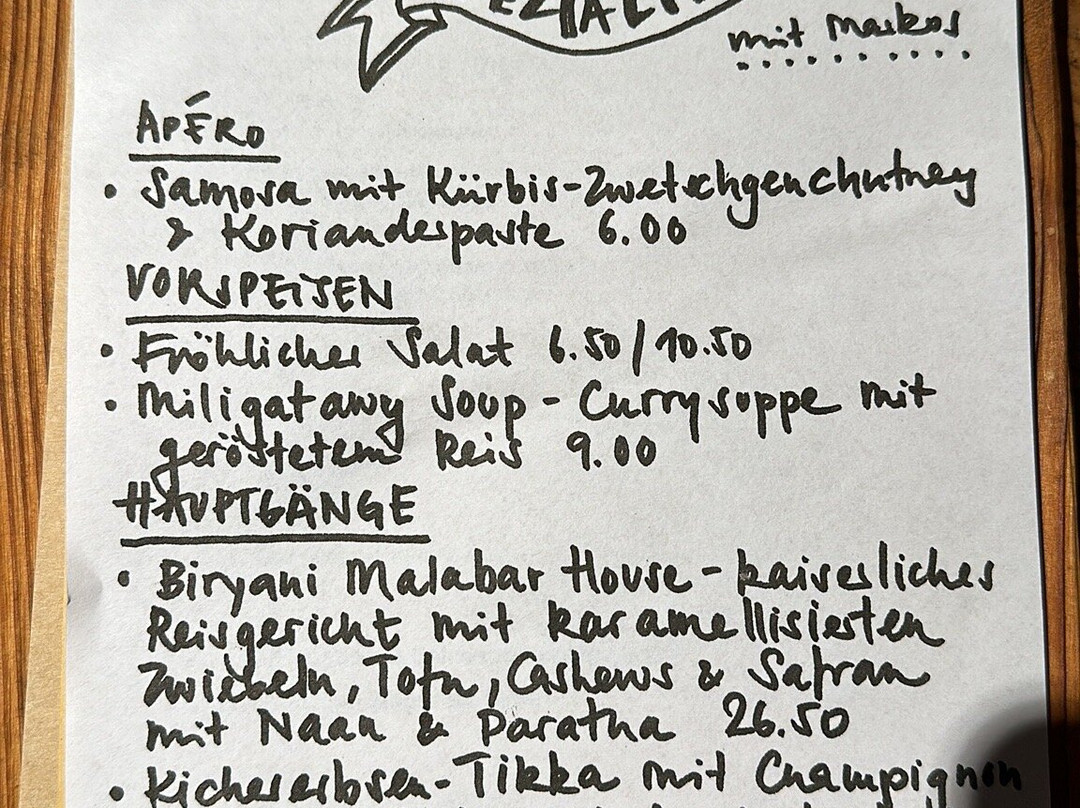 mit Markos
APÉRO
• Samosa mit Kürbis-Zwetschgenchutney
& Korianderpaste 6.00
VORSPEISEN
• Fröhlicher Salat 6.50/10.50
• Miligatawy Soup - Currysuppe mit
geröstetem Reis 9.00
HAUPTGÄNGE
• Biryani Malabar House - kaiserliches
Reisgericht mit karamellisierten
Zwiebeln, Tofu, Cashews & Safran
mit Naan & Paratha 26.50
• Kichererbsen-Tikka mit Champignon